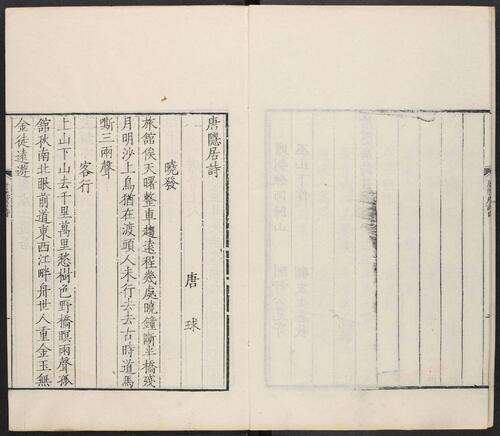 唐隱居詩
唐球
曉發
旅館俟天曙整車趨遠程幾處曉鐘斷半橋殘
月明沙上鳥猶在渡頭人未行去去古時道馬
嘶三兩聲
客行
上山下山去千里萬里愁樹色野橋暝雨聲孤
館秋南北眼前道東西江畔舟世人重金玉無
金徒遠遊